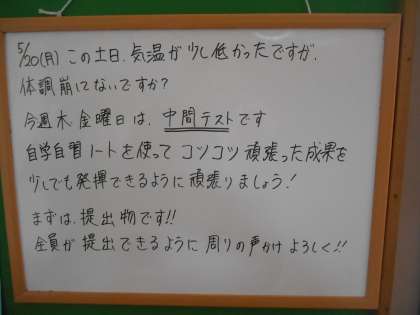 5/20(月) この土日、気温が少し低かったですが、
体調崩してないですか?
今週木、金曜日は、中間テストです
自学自習ノートを使って コツコツ頑張った成果を
少しでも発揮できるように頑張りましょう!
まずは、提出物です!!
全員が提出できるように周りの声かけよろしく!!